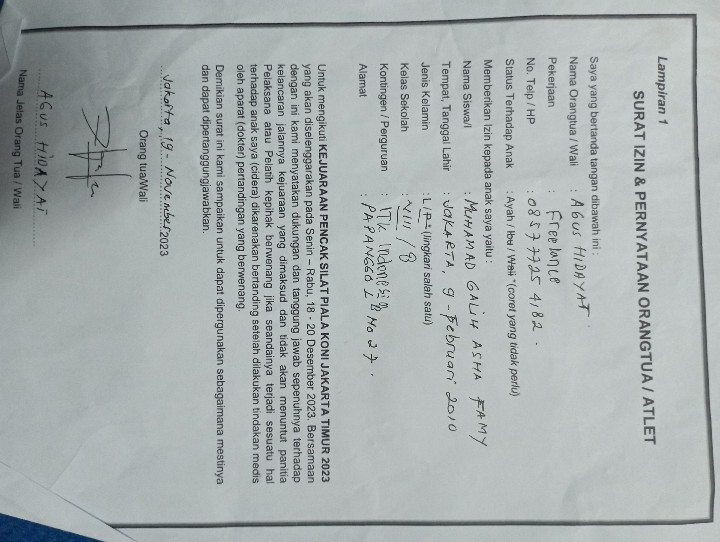 Lampiran 1
SURAT IZIN & PERNYATAAN ORANGTUA / ATLET
Saya yang bertanda tangan dibawah ini :
Nama Orangtua / Wali : AGUS HIDAYAT
Pekerjaan : Freelance
No. Telp / HP : 085777254182.
Status Terhadap Anak : Ayah / Ibu / Wali *(coret yang tidak perlu)
Memberikan Izin kepada anak saya yaitu :
Nama Siswa/i : MUHAMAD GALIH ASHA FAMY
Tempat, Tanggal Lahir : JAKARTA, 9 - Februari 2010
Jenis Kelamin : L / P * (lingkari salah satu)
Kelas Sekolah : VIII / 8
Kontingen / Perguruan : Indonesia
Alamat : PAPANGGO I No 27.
Untuk mengikuti KEJUARAAN PENCAK SILAT PIALA KONI JAKARTA TIMUR 2023
yang akan diselenggarakan pada Senin – Rabu, 18 - 20 Desember 2023. Bersamaan
dengan ini kami menyatakan dukungan dan tanggung jawab sepenuhnya terhadap
kelancaran jalannya kejuaran yang dimaksud dan tidak akan menuntut panitia
Pelaksana atau Pelatih kepihak berwenang jika seandainya terjadi sesuatu hal
terhadap anak saya (cidera) dikarenakan bertanding setelah dilakukan tindakan medis
oleh aparat (dokter) pertandingan yang berwenang.
Demikian surat ini kami sampaikan untuk dapat dipergunakan sebagaimana mestinya
dan dapat dipertanggungjawabkan.
Jakarta, 19 - November 2023
Orang tua/Wali
AGUS HIDAYAT
Nama Jelas Orang Tua / Wali